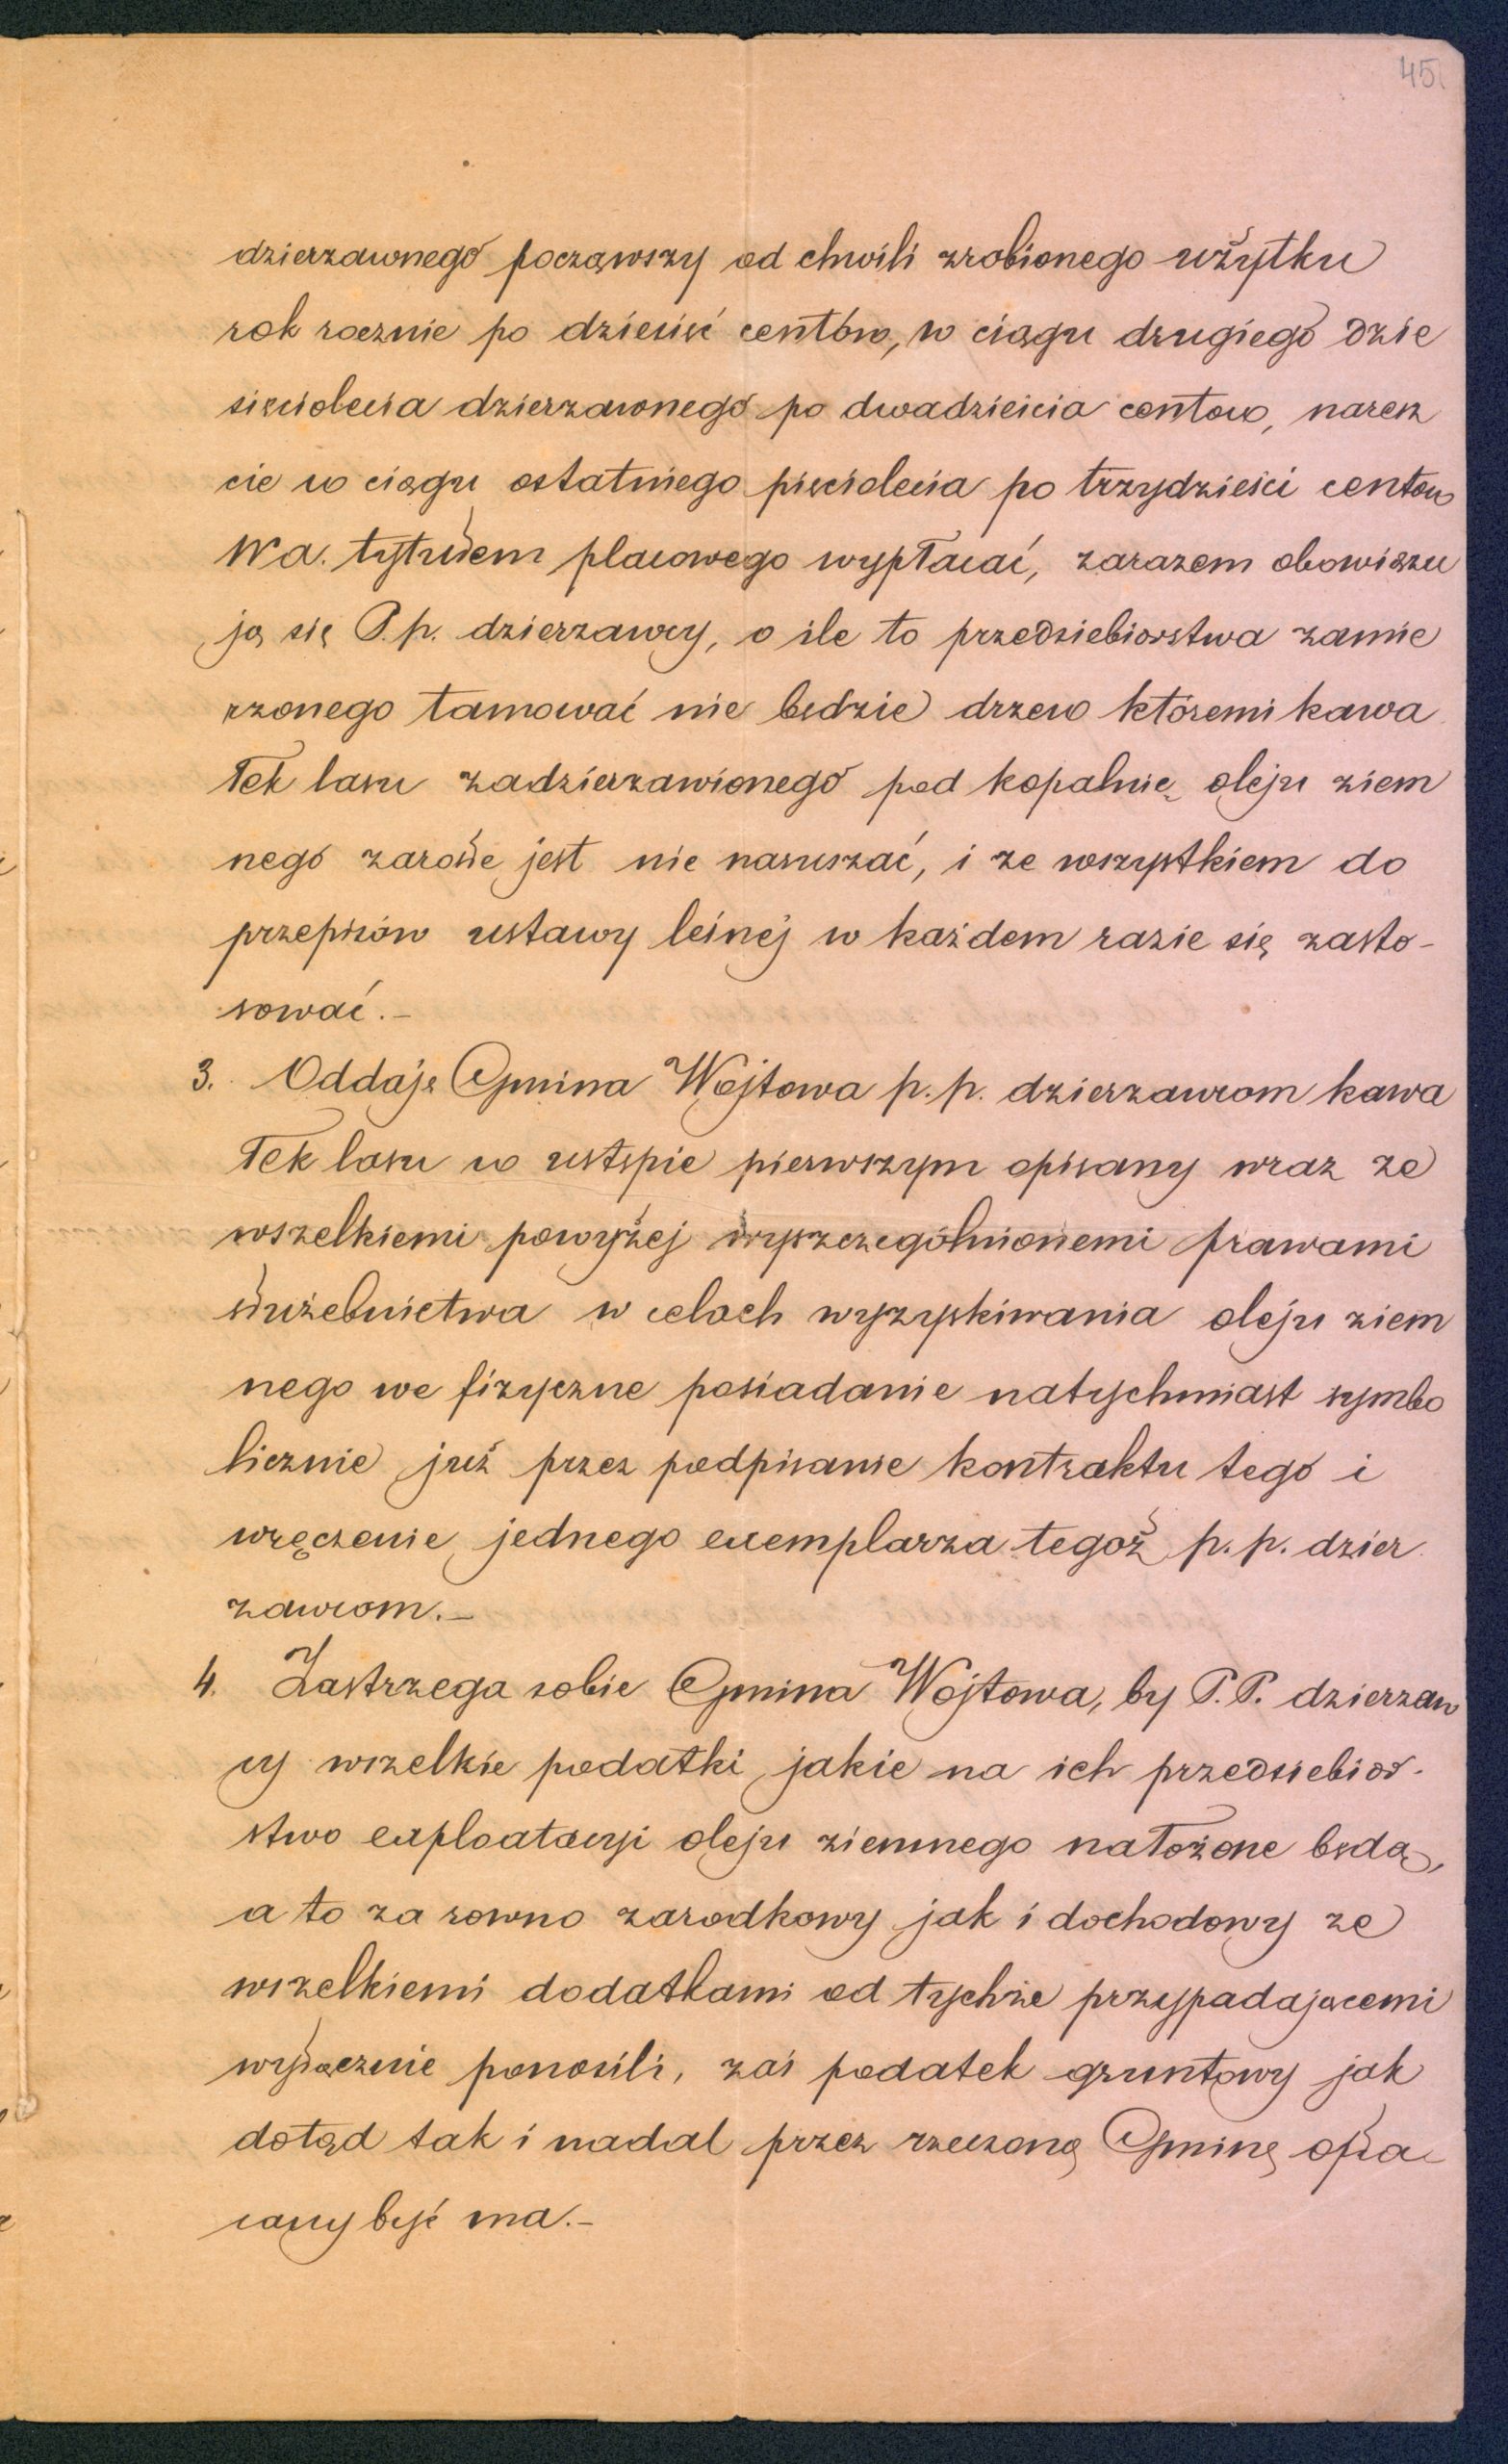 45.
dzierzawnego począwszy od chwili zrobionego użytku
rok rocznie po dziesięć centów, w ciągu drugiego dzie
sięciolecia dzierzawnego po dwadzieścia centow, naresz
cie w ciągu ostatniego pięciolecia po trzydzieści centow
Wa. tytułem placowego wypłacać, zarazem obowiązu
ją się P.p. dzierzawcy, o ile to przedsiebiorstwa zamie
rzonego tamować nie będzie drzew któremi kawa
łek lasu zadzierzawionego pod kopalnię oleju ziem
nego zarosłe jest nie naruszać, i ze wszystkiem do
przepisów ustawy leśnej w każdem razie się zasto-
sować.-
3. Oddaje Gmina Wójtowa p.p. dzierzawcom kawa
łek lasu w ustępie pierwszym opisany wraz ze
wszelkiemi powyżej wyszczególnionemi prawami
służebnictwa w celach wyzyskiwania oleju ziem
nego we fizyczne posiadanie natychmiast symbo
licznie już przez podpisanie kontraktu tego i
wręczenie jednego exemplarza tegoż p.p. dzier
zawcom.-
4. Zastrzega sobie Gmina Wójtowa, by P.P. dzierzaw
cy wszelkie podatki jakie na ich przedsiebior-
stwo exploatacyi oleju ziemnego nałożone będą,
a to za rowno zarodkowy jak i dochodowy ze
wszelkiemi dodatkami od tychże przypadającemi
wyłącznie ponosili, zaś podatek gruntowy jak
dotąd tak i nadal przez rzeczoną Gminę opła
cany być ma.-